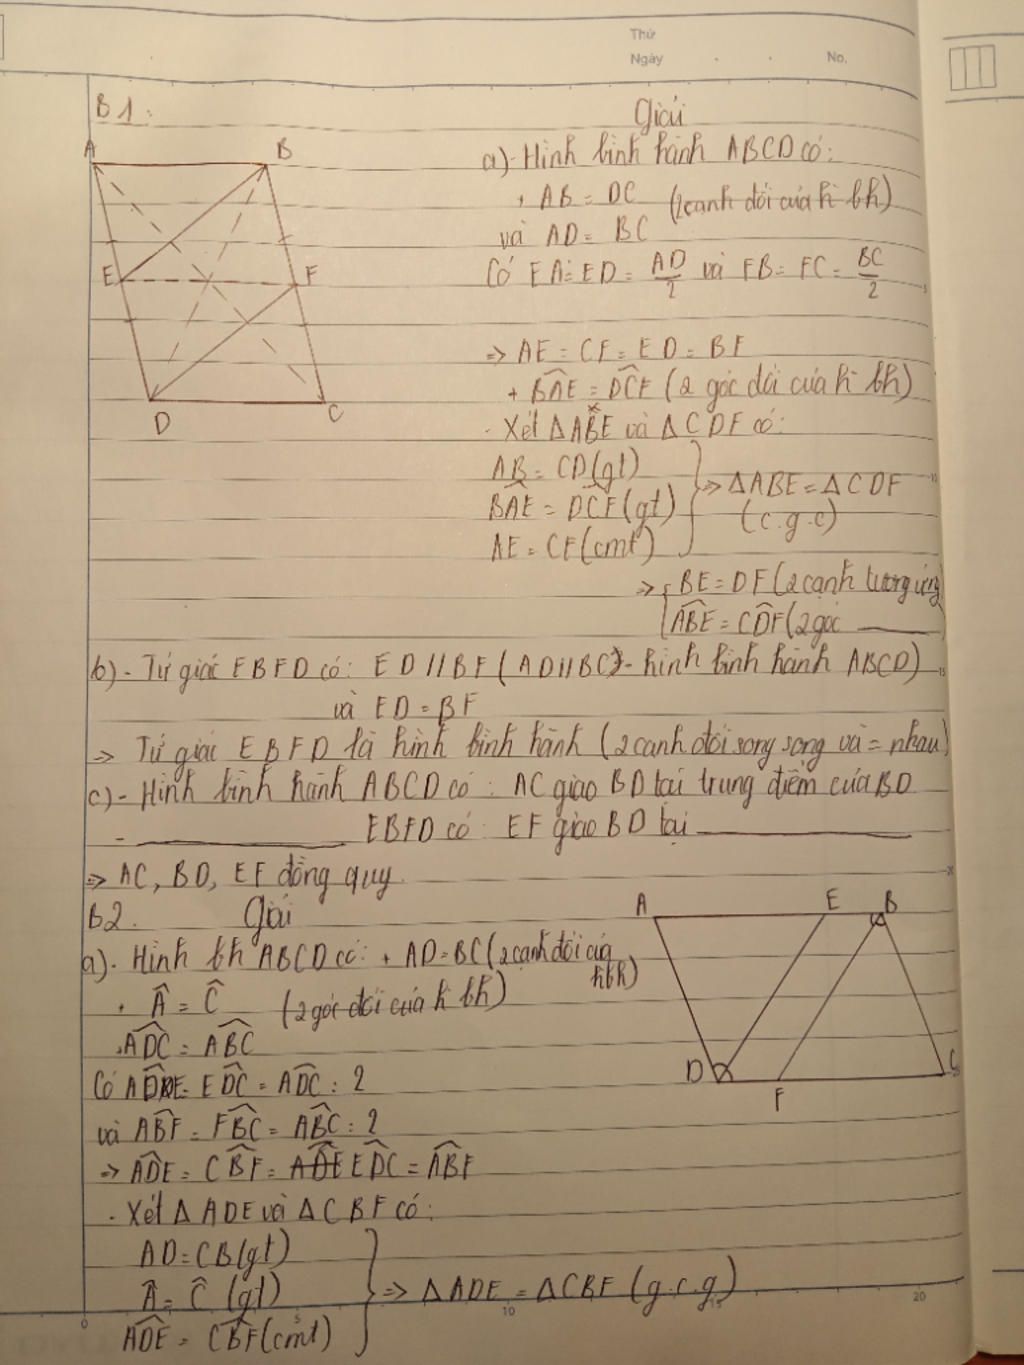 Thứ
Ngày . . No.
B1:
Giải
A B
E F
D C
a)- Hình bình hành ABCD có:
+ AB = DC (2 cạnh đối của h bh)
và AD = BC
Có EA = ED = AD/2 và FB = FC = BC/2
=> AE = CF = ED = BF
+ BAE = DCF (2 góc đối của h bh)
- Xét ΔABE và ΔCDF có:
AB = CD (gt)
BAE = DCF (gt)
AE = CF (cmt)
=> ΔABE = ΔCDF
(c.g.c)
=> { BE = DF (2 cạnh tương ứng)
ABE = CDF (2 góc ———)
b)- Tứ giác EBFD có: ED // BF (AD // BC) - hình bình hành ABCD)
và ED = BF
=> Tứ giác EBFD là hình bình hành (2 cạnh đối song song và = nhau)
c)- Hình bình hành ABCD có: AC giao BD tại trung điểm của BD
- ——— EBFD có: EF giao BD tại ———
=> AC, BD, EF đồng quy.
B2. Giải
A E B
D F C
a)- Hình bh ABCD có: + AD = BC (2 cạnh đối của hbh)
+ Â = Ĉ (2 góc đối của h bh)
+ ADC = ABC
Có ADE = EDC = ADC : 2
và ABF = FBC = ABC : 2
=> ADE = CBF = ADE EDC = ABF
- Xét ΔADE và ΔCBF có:
AD = CB (gt)
Â = Ĉ (gt)
ADE = CBF (cmt)
=> ΔADE = ΔCBF (g.c.g)
0 5 10 15 20